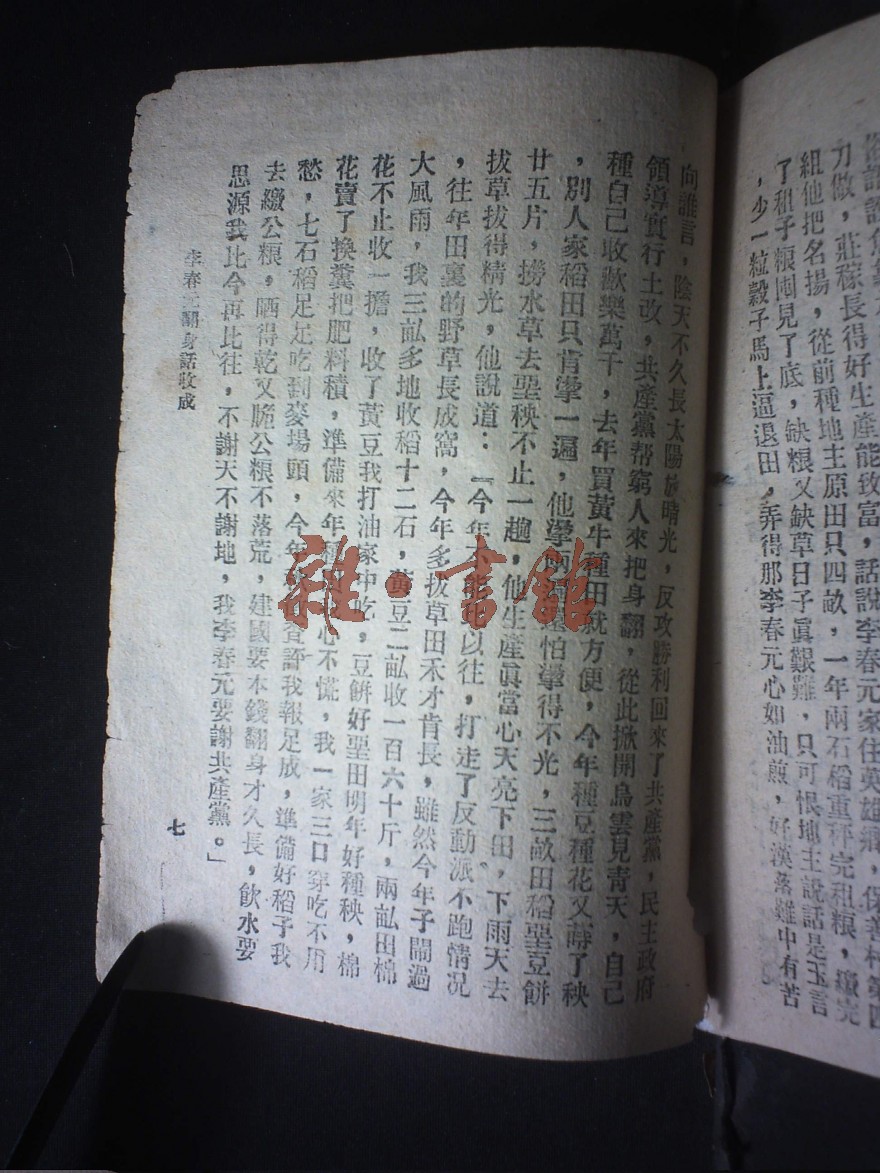 刀做，莊稼長得好生產能致富，話說李春元家住英雄鄉，保善村第四
組他把名揚，從前種地主原田只四畝，一年兩石稻重秤完租糧，繳完
了租子糧囤見了底，缺糧又缺草日子眞艱難，只可恨地主說話是玉言
，少一粒穀子馬上逼退田，弄得那李春元心如油煎，好漢落難中有苦
向誰言，陰天不久長太陽放晴光，反攻勝利回來了共產黨，民主政府
領導實行土改，共產黨帮窮人來把身翻，從此掀開烏雲見青天，自己
種自己收歡樂萬千，去年買黃牛種田就方便，今年種豆種花又蒔了秧
，別人家稻田只肯㨃一遍，他㨃兩怕㨃得不光，三畝田稻垩豆餅
廿五片，撈水草去垩秧不止一趟，他生產眞當心天亮下田，下雨天去
拔草拔得精光，他說道：「今年不能以往，打走了反動派不跑情况
，往年田裏的野草長成窩，今年多拔草田禾才肯長，雖然今年子鬧過
大風雨，我三畝多地收稻十二石，黃豆二畝收一百六十斤，兩畝田棉
花不止收一擔，收了黃豆我打油家中吃，豆餅好垩田明年好種秧，棉
花賣了換糞把肥料積，準備來年心不慌，我一家三口穿吃不用
愁，七石稻足足吃到麥場頭，今年查評我報足成，準備好稻子我
去繳公糧，晒得乾又颺公糧不落荒，建國要本錢翻身才久長，飲水要
思源我比今再比往，不謝天不謝地，我李春元要謝共產黨。」
李春元翻身話收成
七
雜·書館